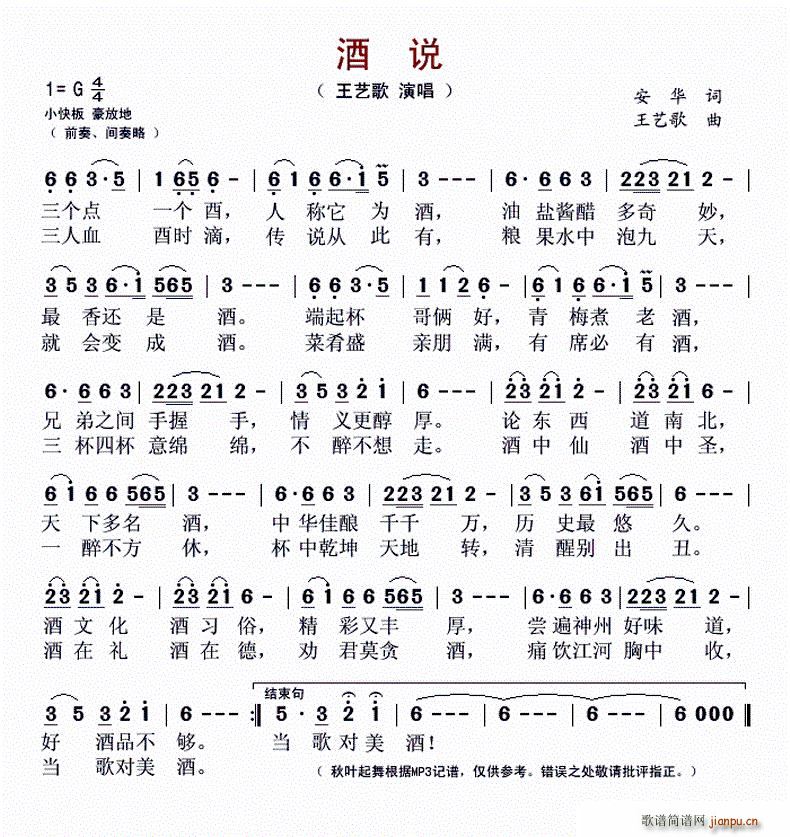 酒 说
1=G 4/4
（ 王艺歌 演唱 ）
安 华 词
小快板 豪放地
王艺歌 曲
（ 前奏、间奏略 ）
6 6 3·5 | 1 65 6 - | 6 1 6 6·1 5 | 3 --- | 6· 6 6 3 | 223 21 2 - |
三个点 一个 酉， 人 称它 为 酒， 油 盐酱醋 多奇 妙，
三人血 酉时 滴， 传 说从 此 有， 粮 果水中 泡九 天，
3 5 3 6·1 565 | 3 --- | 6 6 3·5 | 1 1 2 6 - | 6 1 6 6·1 5 | 3 --- |
最 香还 是 酒。 端起杯 哥俩 好， 青 梅煮 老 酒，
就 会变 成 酒。 菜肴盛 亲朋 满， 有 席必 有 酒，
6· 6 6 3 | 223 21 2 - | 3 5 3 2 1 | 6 --- | 23 21 2 - | 23 21 6 - |
兄 弟之间 手握 手， 情 义更醇 厚。 论 东 西 道 南 北，
三 杯四杯 意绵 绵， 不 醉不想 走。 酒 中 仙 酒 中 圣，
6 1 6 6 565 | 3 --- | 6· 6 6 3 | 223 21 2 - | 3 5 3 61 565 | 6 --- |
天 下多名 酒， 中 华佳酿 千千 万， 历 史最 悠 久。
一 醉不方 休， 杯 中乾坤 天地 转， 清 醒别 出 丑。
23 21 2 - | 23 21 6 - | 6 1 6 6 565 | 3 --- | 6· 6 6 3 | 223 21 2 - |
酒 文 化 酒 习 俗， 精 彩又丰 厚， 尝 遍神州 好味 道，
酒 在 礼 酒 在 德， 劝 君莫贪 酒， 痛 饮江河 胸中 收，
结束句
3 5 3 2 1 | 6 --- :‖ 5· 3 2 1 | 6 --- | 6 --- | 6 --- | 6 000 ‖
好 酒品不 够。 当 歌对 美 酒！
当 歌对美 酒。 （ 秋叶起舞根据MP3记谱，仅供参考。错误之处敬请批评指正。）
歌谱简谱网
jianpu.cn